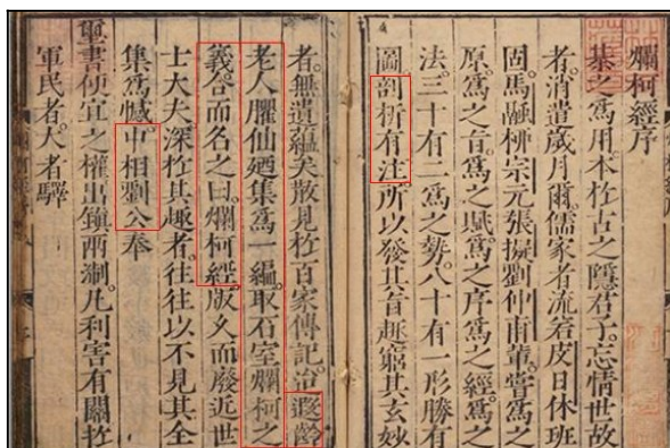 爛柯經序
棊之爲用本扵古之隱君子忘情世故
者消遣歲月爾儒家者流若皮日休班
固馬融栁宗元張擬劉仲甫輩嘗爲之
原爲之旨爲之賦爲之序爲之經爲之
法三十有二爲之勢八十有一形勝有
圖剖析有注所以發其旨趣窮其玄妙
者無遺蘊矣散見扵百家傳記遐齡
老人臞仙廼集爲一編取石室爛柯之
義合而名之曰爛柯經版乆而廢近世
士大夫深扵其趣者往往以不見其全
集爲憾中相劉公奉
璽書便宜之權出鎮兩淛凡利害有關扵
軍民者大者驛